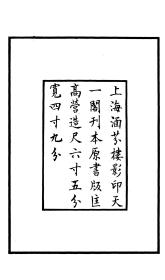 上海涵芬樓影印天
一閣刊本原書版匡
高營造尺六寸五分
寬四寸九分